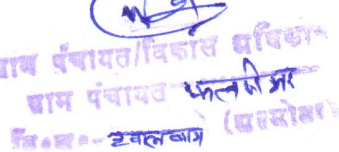 ग्राम पंचायत/विकास अधिकारी
ग्राम पंचायत फलसीमा
वि.ख.- हवालबाग (अल्मोड़ा)